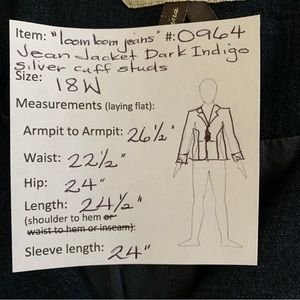 Item: "loom loom jeans" #: 0964
Jean Jacket Dark Indigo
silver cuff studs
Size: 18W
Measurements (laying flat):
Armpit to Armpit: 26½"
Waist: 22½"
Hip: 24"
Length: 24½"
(shoulder to hem or
waist to hem or inseam):
Sleeve length: 24"